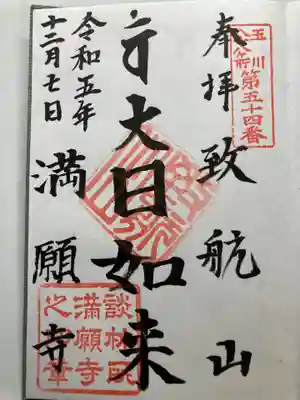 玉川
八十八ヶ所
第五十四番
奉拝
致航山
大日如来
満願寺
令和五年
十二月七日
談林所
満願寺
之章